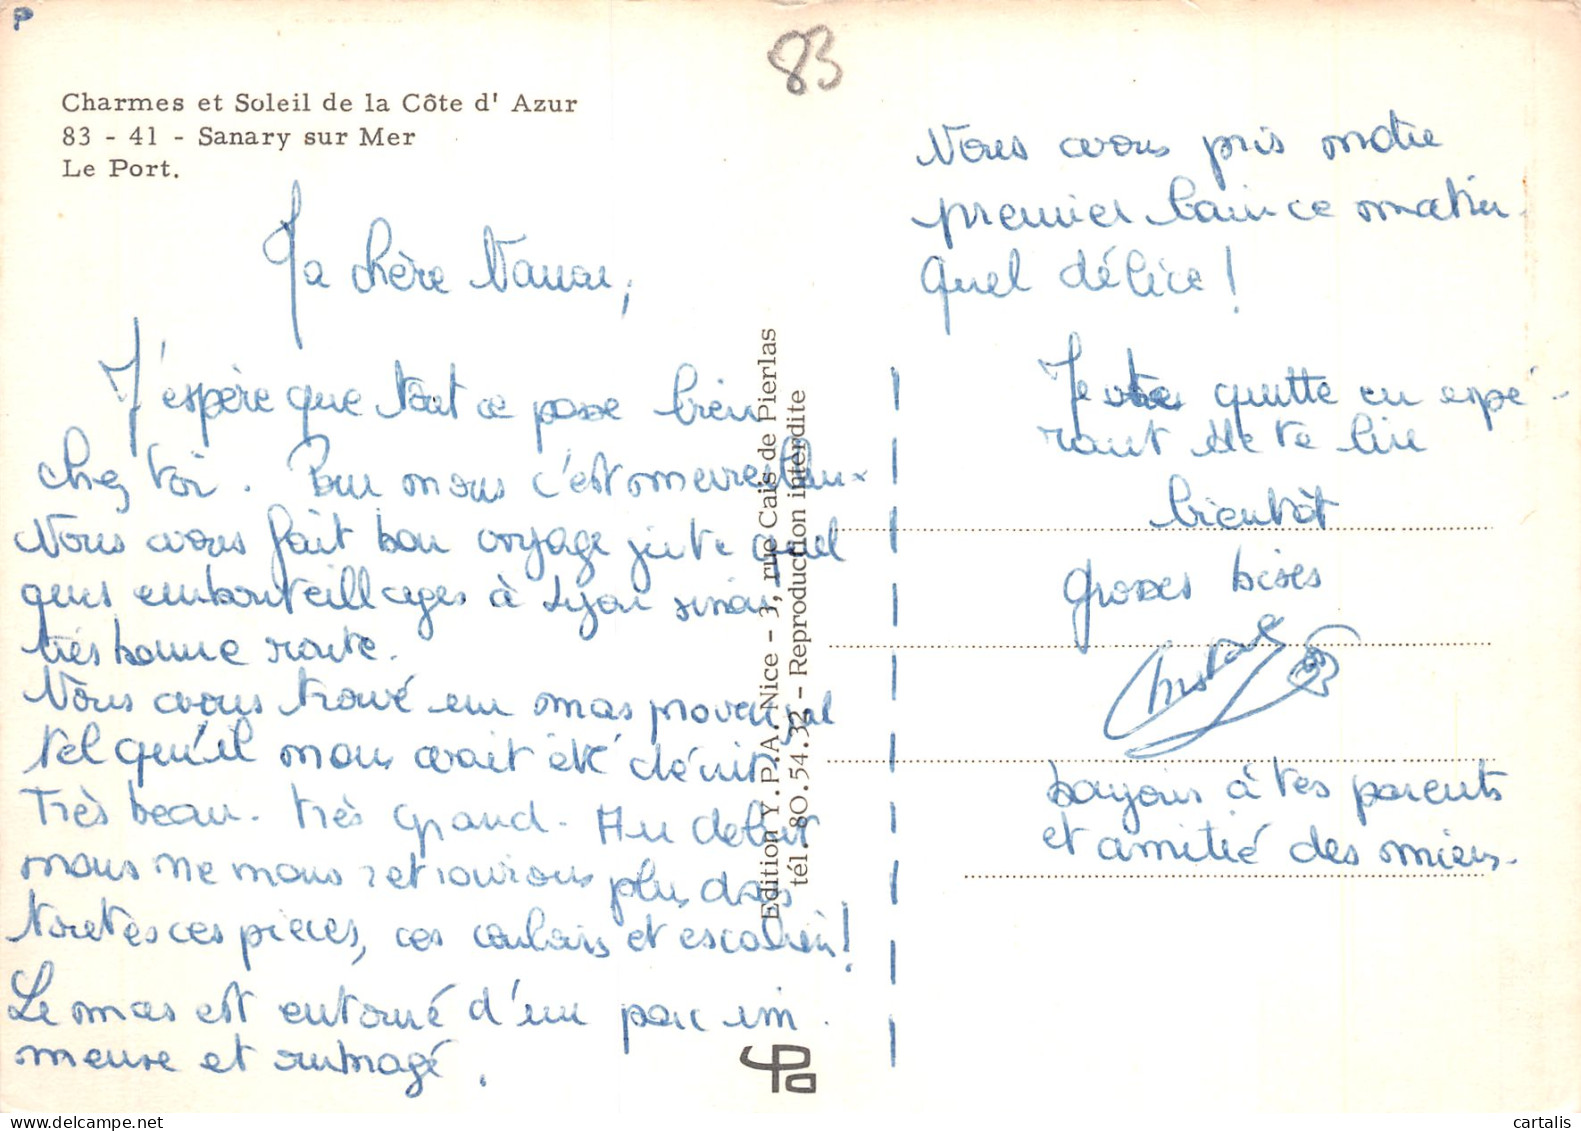 P
83
Charmes et Soleil de la Côte d' Azur
83 - 41 - Sanary sur Mer
Le Port.
Ma chère
J'espère que tout ce passe bien
chez toi. Pour nous c'est merveilleux
Nous avons fait bon voyage juste quel
ques embouteillages à Lyon sinon
très bonne route.
Nous avons trouvé un mas provençal
tel qu'il nous avait été décrit
Très beau. très grand. Au debut
nous ne nous retrouvions plus dans
toutes ces pièces, ces couloirs et escaliers!
Le mas est entouré d'un parc im
mense et ombragé.
Edition Y.P.A. Nice - 3, rue Caïs de Pierlas
tél. 80.54.32 - Reproduction interdite
Nous avons pris notre
premier bain ce matin.
Quel délice!
Je te quitte en espé-
rant de te lire
bientôt
grosses bises
bonjour à tes parents
et amitié des miens.